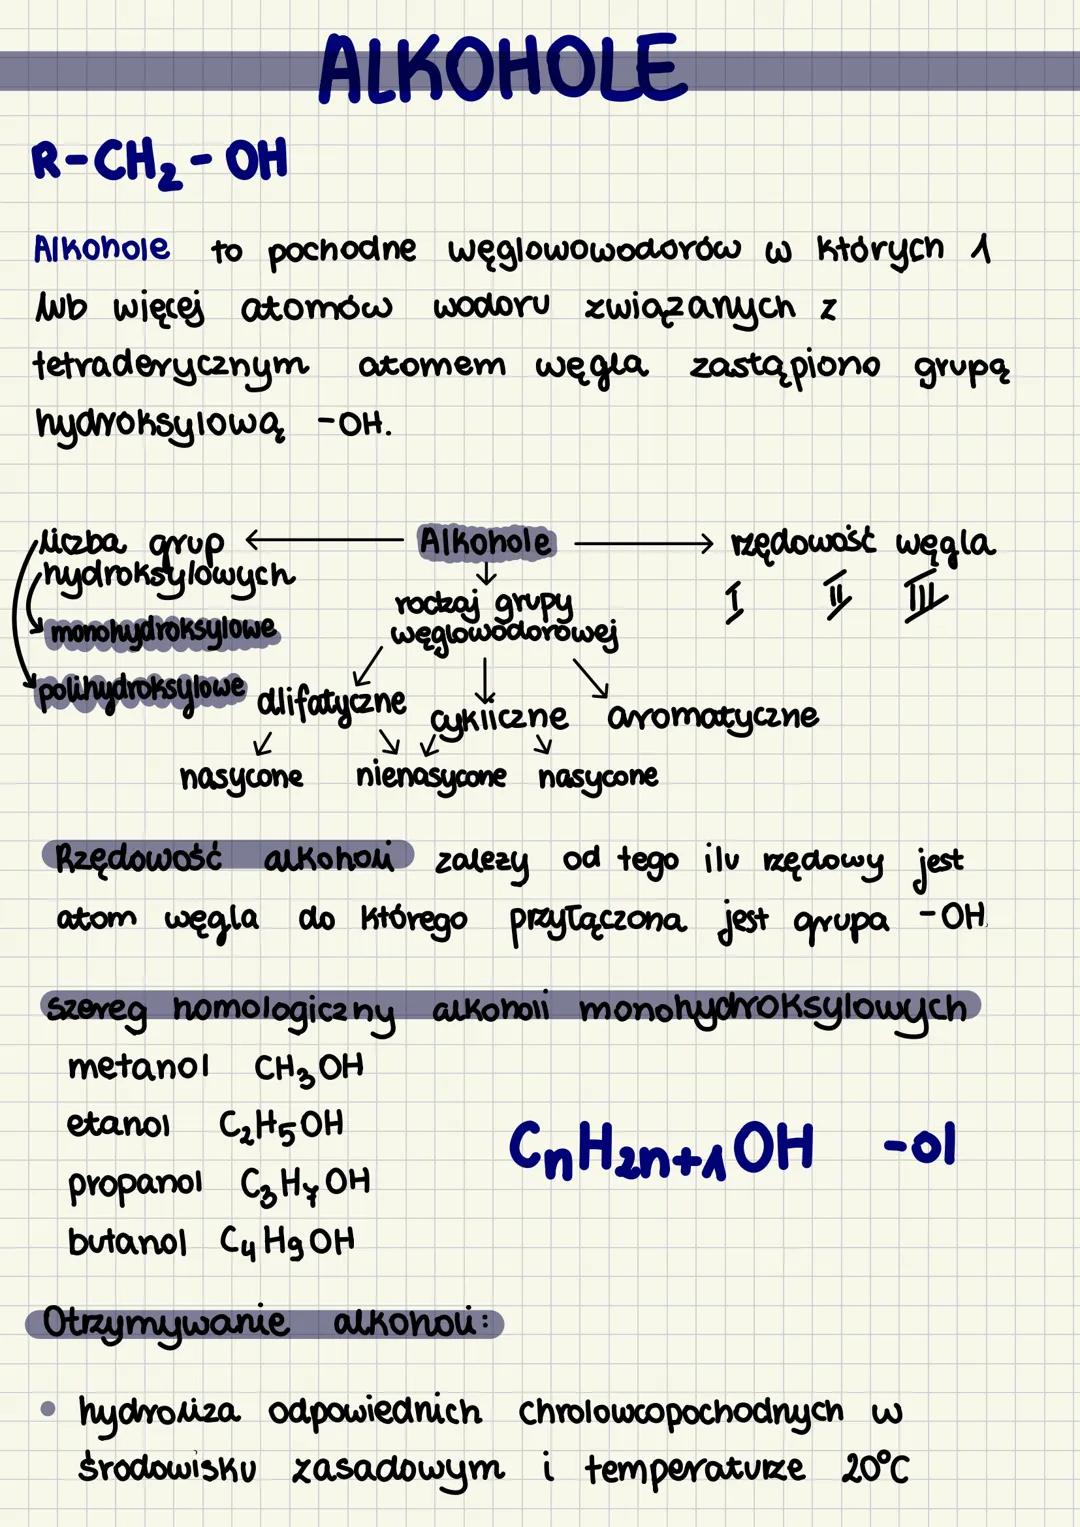 ALKOHOLE
R-CH₂-OH
Alkohole to pochodne węglowowodorów w których 1
lub więcej atomów wodoru związanych z
tetraderycznym atomem węgla zastąpiono grupą
hydroksylową -OH.
liczba grup ← Alkohole → rzędowość węgla
hydroksylowych
rodzaj grupy
węglowodorowej
I II III
monohydroksylowe
polihydroksylowe
alifatyczne cykliczne aromatyczne
nasycone nienasycone nasycone
Rzędowość alkoholi zależy od tego ilu rzędowy jest
atom węgla do którego przyłączona jest grupa -OH
szereg homologiczny alkoholi monohydroksylowych
metanol CH₃OH
etanol C₂H₅OH
propanol C₃H₇OH
butanol C₄H₉OH
CnH2n+1OH -ol
Otrzymywanie alkoholi:
• hydroliza odpowiednich chrolowcopochodnych w
środowisku zasadowym i temperaturze 20°C